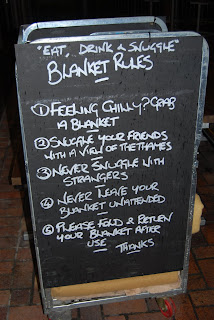 "EAT, DRINK & SNUGGLE"
BLANKET RULES
① FEELING CHILLY? GRAB
A BLANKET
② SNUGGLE YOUR FRIENDS
WITH A VIEW OF THE THAMES
③ NEVER SNUGGLE WITH
STRANGERS
④ NEVER LEAVE YOUR
BLANKET UNATTENDED
⑤ PLEASE FOLD & RETURN
YOUR BLANKET AFTER
USE THANKS